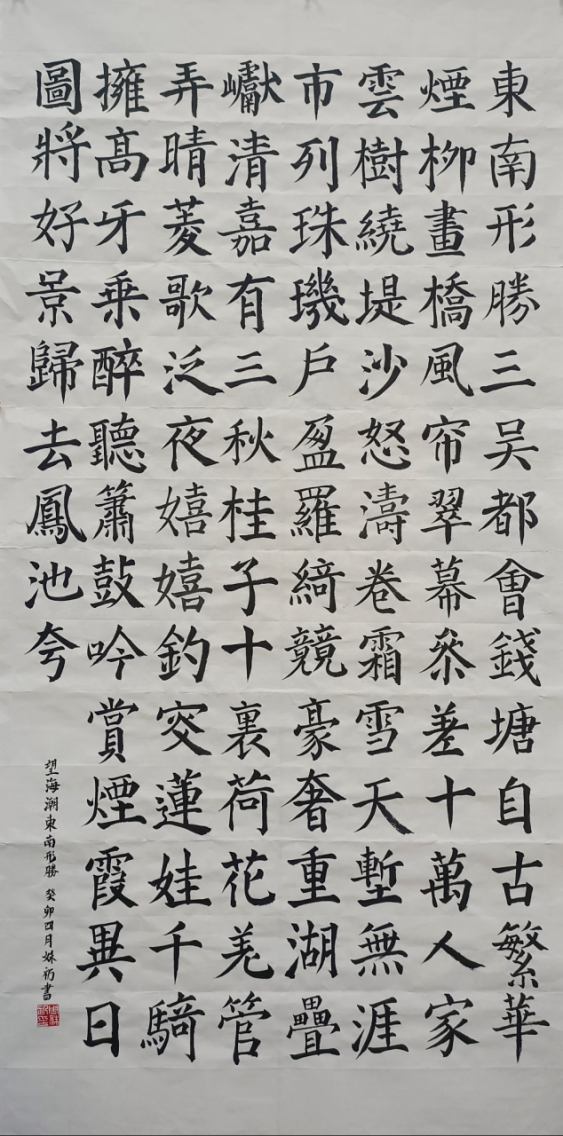 東南形勝三吴都會錢塘自古繁華
煙柳畫橋風帘翠幕叅差十萬人家
雲樹繞堤沙怒濤卷霜雪天塹無涯
市列珠璣戶盈羅綺競豪奢重湖疊
巘清嘉有三秋桂子十裏荷花羌管
弄晴菱歌泛夜嬉嬉釣叜蓮娃千騎
擁高牙乘醉聽簫鼓吟賞煙霞異日
圖將好景歸去鳳池夸
望海潮東南形勝 癸卯四月姝書